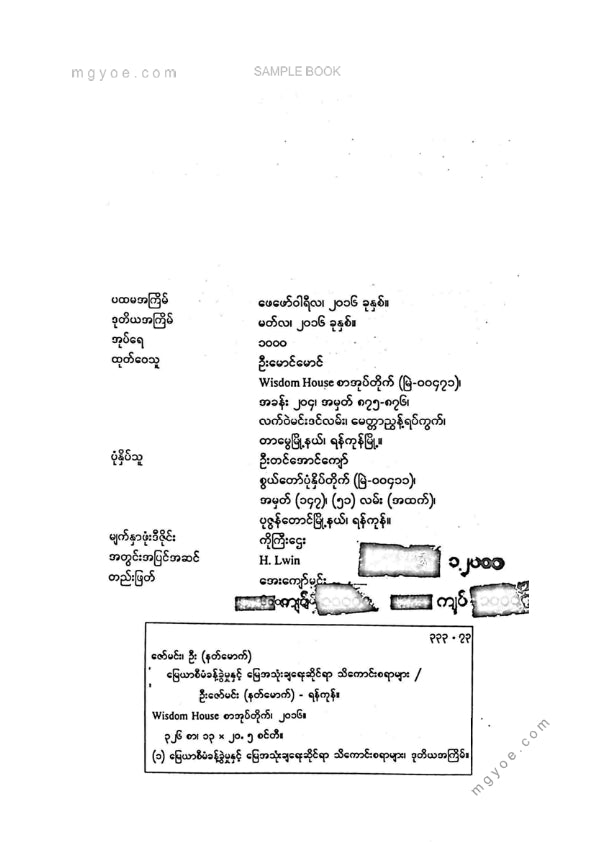 mgyoe.com SAMPLE BOOK
ပထမအကြိမ် ဖေဖော်ဝါရီလ၊ ၂၀၁၆ ခုနှစ်။
ဒုတိယအကြိမ် မတ်လ၊ ၂၀၁၆ ခုနှစ်။
အုပ်ရေ ၁၀၀၀
ထုတ်ဝေသူ ဦးမောင်မောင်
Wisdom House စာအုပ်တိုက် (မြဲ-၀၀၄၇၁)၊
အခန်း ၂၀၄၊ အမှတ် ၈၇၅-၈၇၆၊
လက်ဝဲမင်းဒင်လမ်း၊ မေတ္တာညွန့်ရပ်ကွက်၊
တာမွေမြို့နယ်၊ ရန်ကုန်မြို့။
ပုံနှိပ်သူ ဦးတင်အောင်ကျော်
စွယ်တော်ပုံနှိပ်တိုက် (မြဲ-၀၀၄၁၁)၊
အမှတ် (၁၄၇)၊ (၅၁) လမ်း (အထက်)၊
ပုဇွန်တောင်မြို့နယ်၊ ရန်ကုန်။
မျက်နှာဖုံးဒီဇိုင်း ကိုကြီးဌေး
အတွင်းအပြင်အဆင် H. Lwin ၁၂၀၀၀
တည်းဖြတ် အေးကျော်မင်း
ကျပ်
၃၃၃ . ၇၃
ဇော်မင်း၊ ဦး (နတ်မောက်)
မြေယာစီမံခန့်ခွဲမှုနှင့် မြေအသုံးချရေးဆိုင်ရာ သိကောင်းစရာများ /
ဦးဇော်မင်း (နတ်မောက်) - ရန်ကုန်။
Wisdom House စာအုပ်တိုက်၊ ၂၀၁၆။
၃၂၆ စာ၊ ၁၃ × ၂၀. ၅ စင်တီ။
(၁) မြေယာစီမံခန့်ခွဲမှုနှင့် မြေအသုံးချရေးဆိုင်ရာ သိကောင်းစရာများ၊ ဒုတိယအကြိမ်။
mgyoe.com